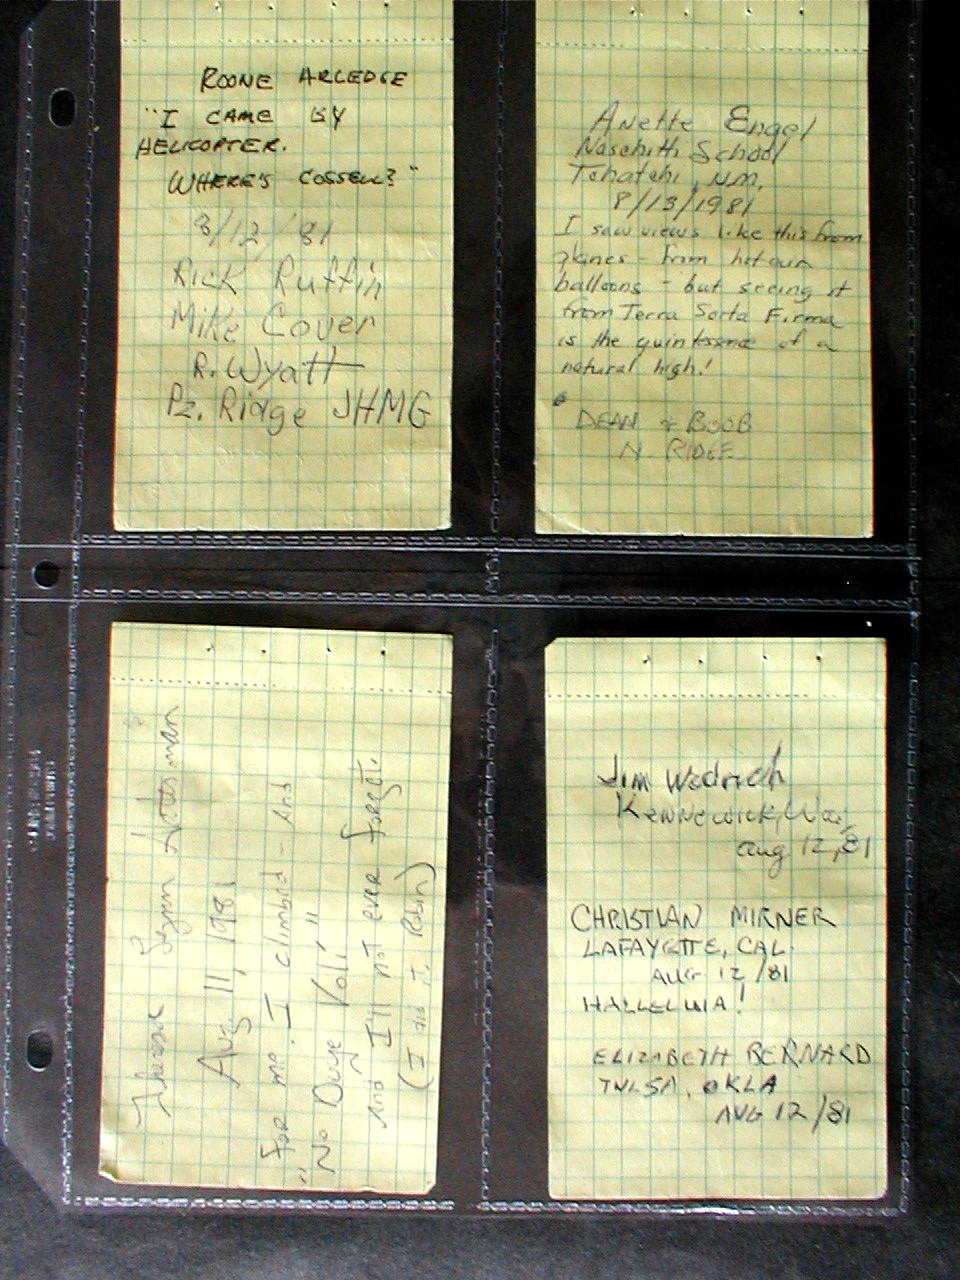 ROONE ARLEDGE
"I CAME BY
HELICOPTER.
WHERE'S COSSELL?"
8/12/81
Rick Ruffin
Mike Cover
R. Wyatt
Pz. Ridge JHMG
Anette Engel
Nasehitti School
Tohatchi, N.M.
8/13/1981
I saw views like this from
planes - from hot air
balloons - but seeing it
from Terra Sorta Firma
is the quintessence of a
natural high!
DEAN & BOOB
N. RIDGE
Theresa Lynn
Aug 11, 1981
For me. I climbid - And
"No Duge Voli,"
And I'll not ever forget.
(I did it Robin)
Jim Wodrich
Kennewick, Wa,
aug 12, 81
CHRISTIAN MIRNER
LAFAYETTE, CAL.
AUG 12/81
HALLELUIA!
ELIZABETH BERNARD
TULSA, OKLA
AUG 12/81